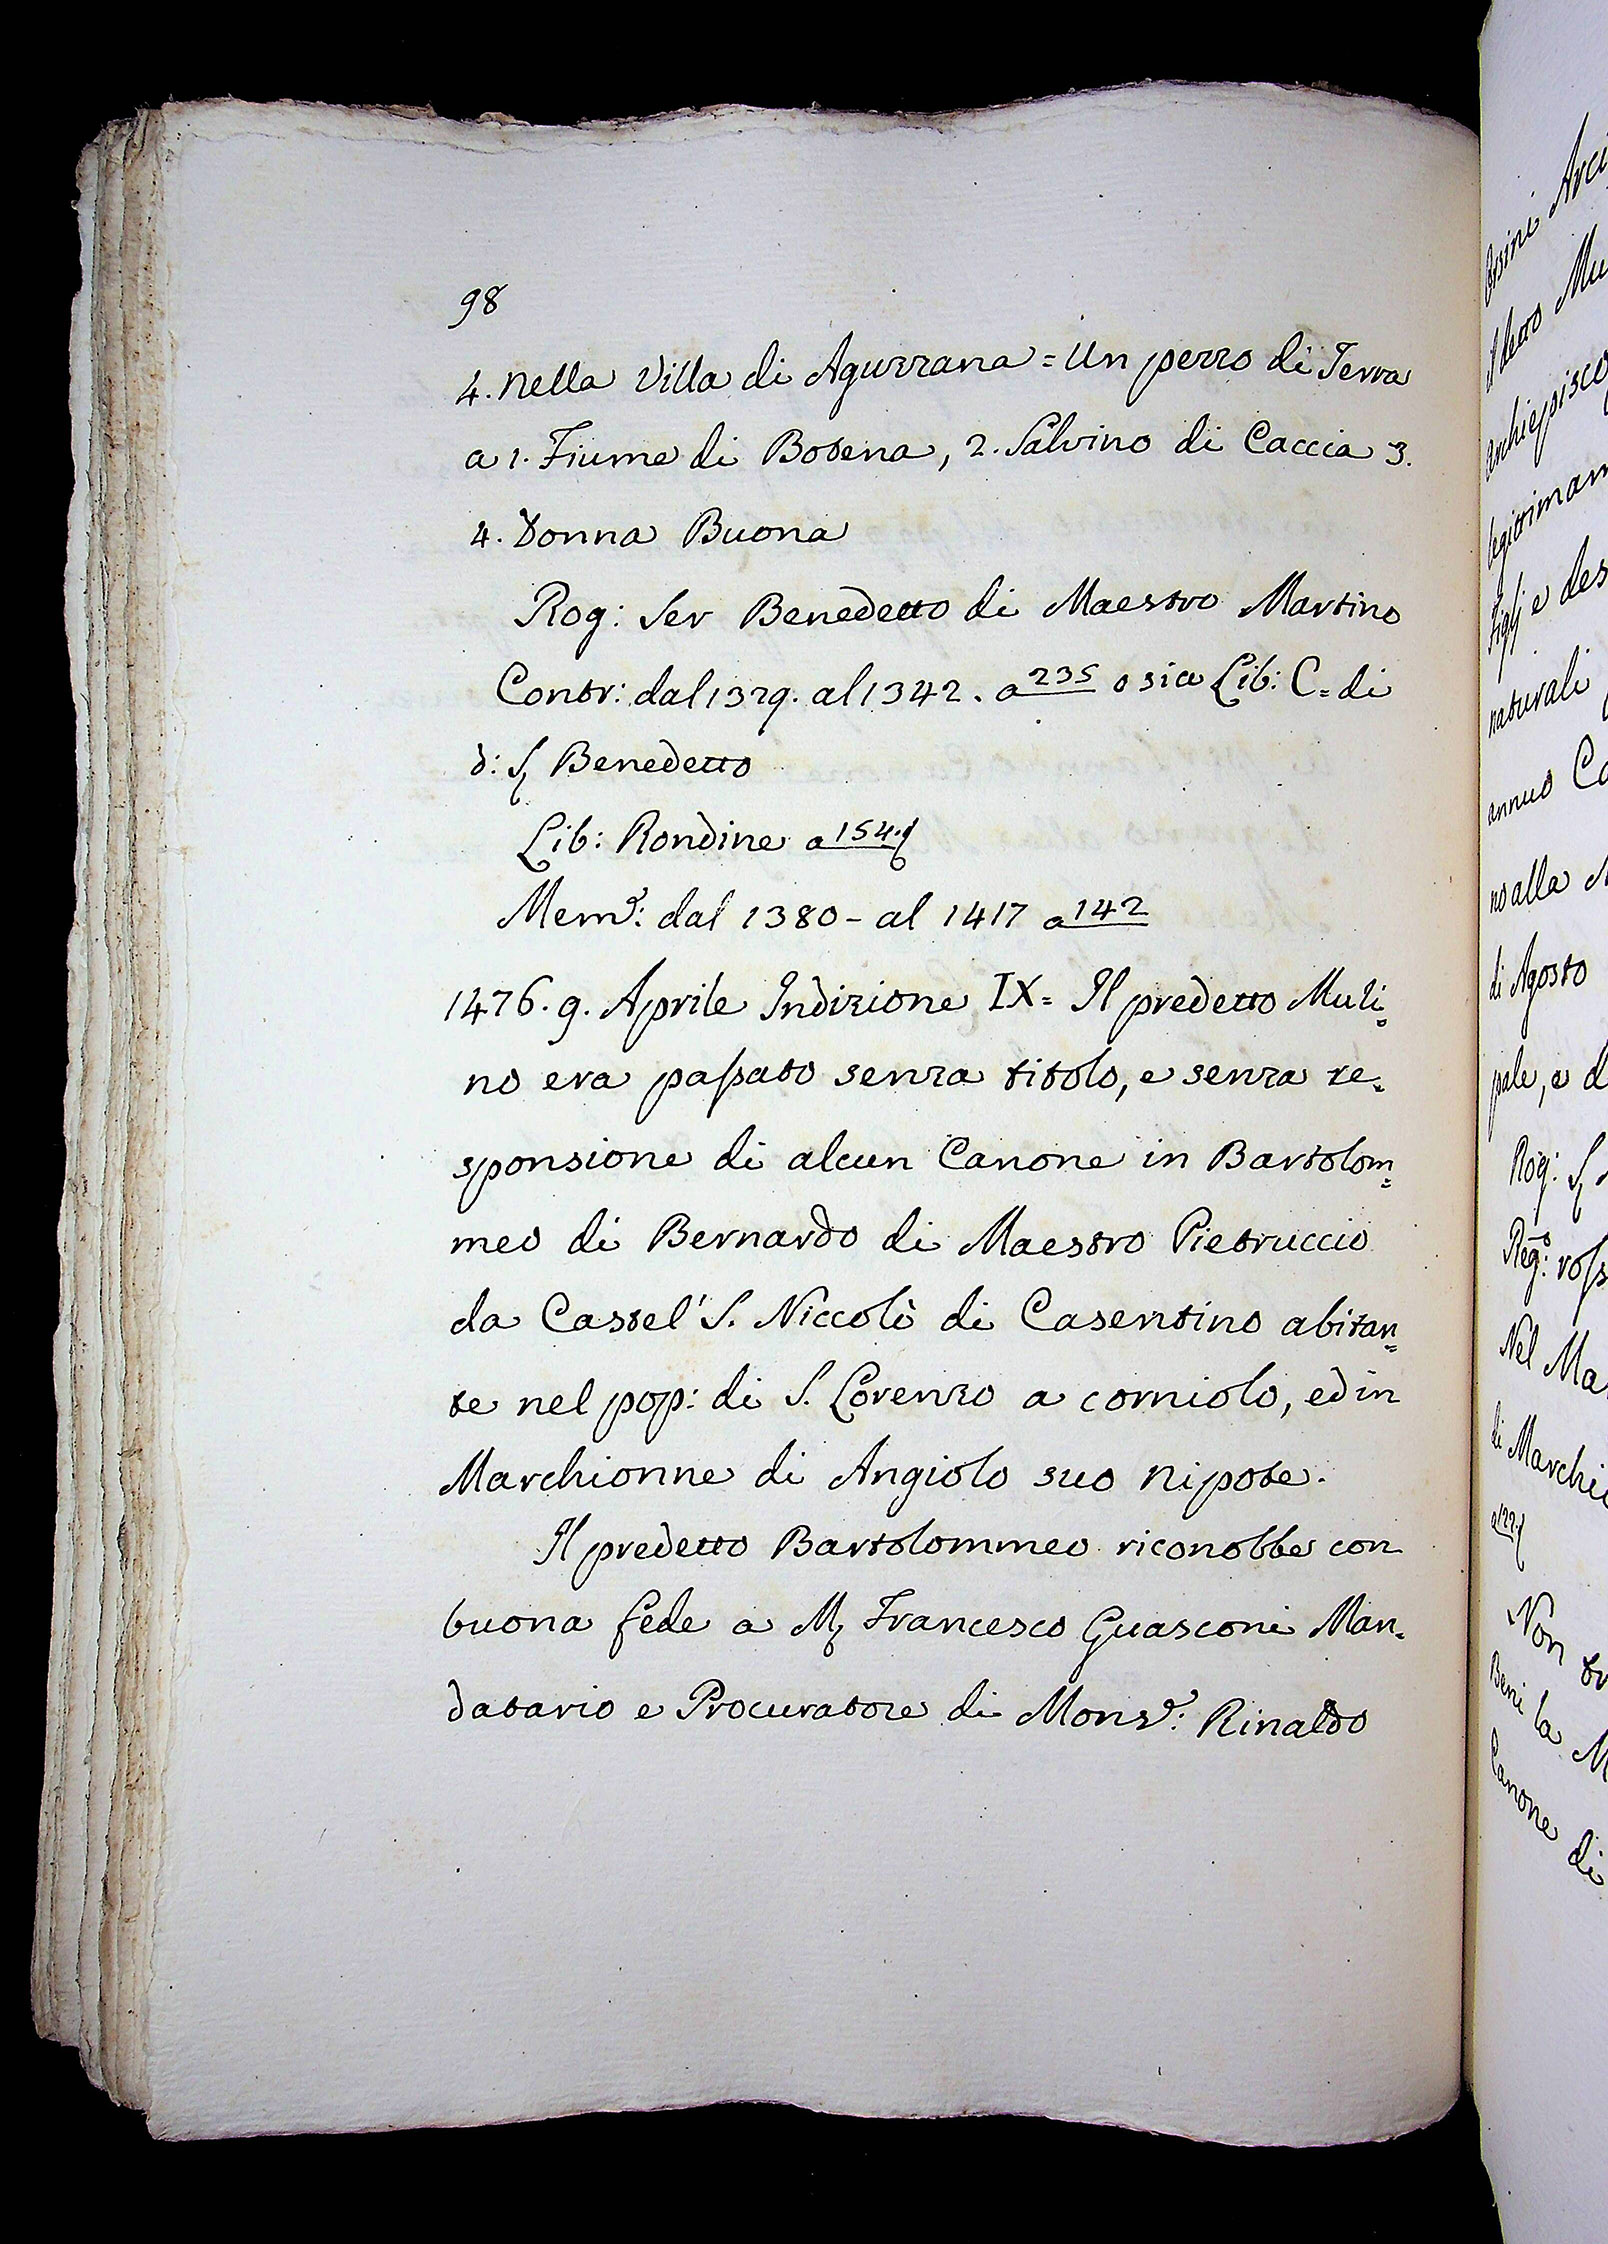 98
4. Nella Villa di Aguzzana = Un pezzo di Terra
a 1. Fiume di Botena, 2. Salvino di Caccia 3.
4. Donna Buona
Rog: Ser Benedetto di Maestro Martino
Contr: dal 1329. al 1342. a 235 o sia Lib: C= di
d: S. Benedetto
Lib: Rondine a 154.
Mem.e: dal 1380 - al 1417 a 142
1476. 9. Aprile Indizione IX = Il predetto Muli=
no era passato senza titolo, e senza re=
sponsione di alcun Canone in Bartolom=
meo di Bernardo di Maestro Pietruccio
da Castel' S. Niccolò di Casentino abitan=
te nel pop: di S. Lorenzo a corniolo, ed in
Marchionne di Angiolo suo nipote.
Il predetto Bartolommeo riconobbe con
buona fede a M. Francesco Guasconi Man=
datario e Procuratore di Mons.e: Rinaldo
Il detto
legittimam
Figlj e des
naturali
annuo
no alla
di Agosto
pale, e d
Rog: S.
Reg.o:
Nel
di Marchi
Non
Beni la
Canone di